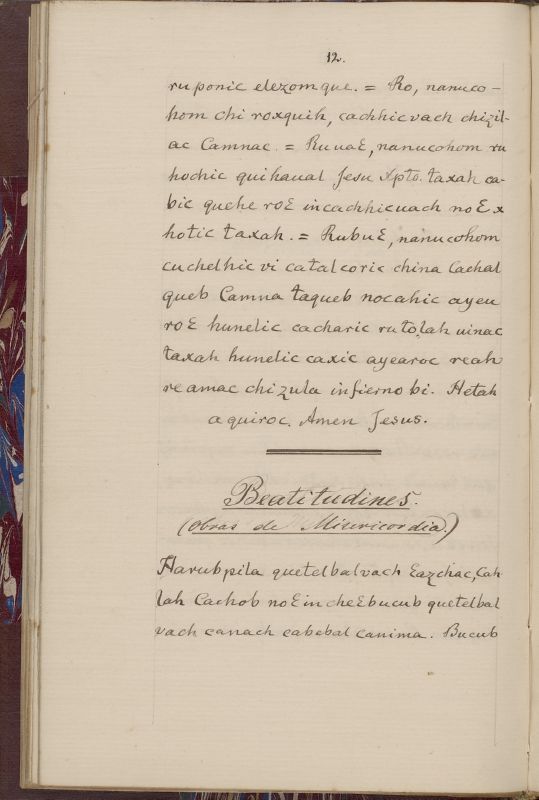 12.
ru ponic elezom que. = Ro, nanuco-
hom chi roxquih, cachhic vach chizil-
ac Camnac. = Ru uaƐ, nanucohom ru
hochic quihaual Jesu Xpto. taxah ca-
bic quehe roƐ incachhicuach noƐ x
hotic taxah. = RubuƐ, nanucohom
cuchelhic vi catalcoric china Cachal
queb Camna taqueb nocahic ayeu
roƐ hunelic cacharic ru to,lah uinac
taxah hunelic caxic ayearoc reah
re amac chizula infierno bi. Hetah
aquiroc. Amen Jesus.
Beatitudines.
(Obras de Misericordia.)
Harubpila quetelbalvach Ɛazchac, Cah
lah Cachob noƐ in cheƐbucub quetelbal
vach canach cabebal canima. Bucub